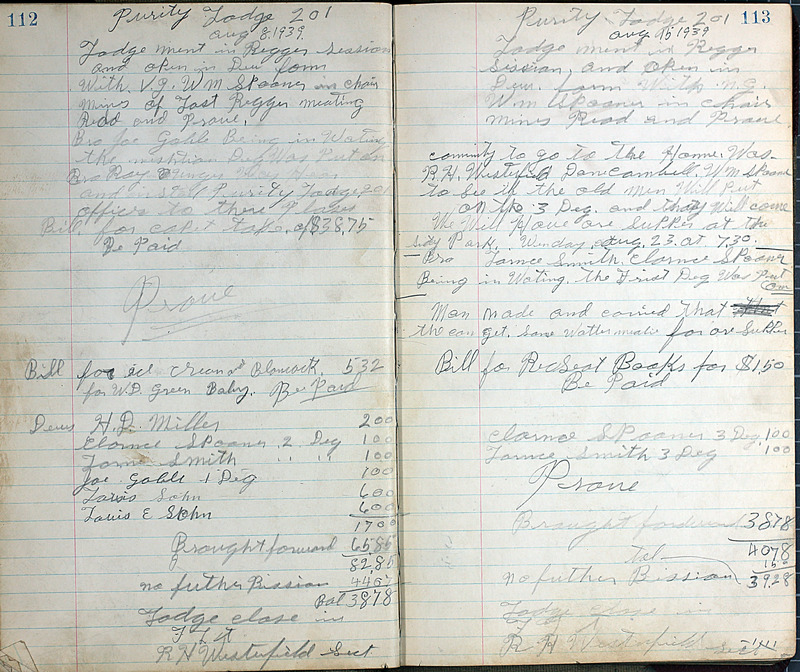 112
Purity Lodge 201
aug 8, 1939
Lodge ment in Regger session
and open in Due form
With V.G. Wm Spooner in chair
mines of Last Regger meating
Read and Prove.
Bro Joe Goble Being in Wating
the Deg Was Put on
Bro Ray
and install Purity Lodge 201
officers to there Places
Bill for take of $38.75
Be Paid
Prove
Bill for ice cream 532
for W.D. Green Baby. Be Paid
Dews H.D. Miller 200
Clarnce Spooner 2 Deg 100
Jamce Smith " " 100
Joe Goble 1 Deg 100
Lewis Sohn 600
Lewis E Sohn 600
1700
Brought forward 6585
8285
no futher Bission 4407
Bal 3878
Lodge close in
F L T
R H Westerfield Sect
113
Purity Lodge 201
aug. 15 1939
Lodge ment in Regger
session, and open in
Due form With N.G.
Wm Spooner in chair
mines Read and Prove
comity to go to the Home. Was
R.H. Westerfield Dan Cambell, Wm Spooner
to See if the old men Will Put
on the 3 Deg. and thay Will come
We Will Have are Supper at the
City Park. Wenday aug. 23. at 7.30.
Bro Jamce Smith. Clarnce Spooner
Being in Wating. the First Deg Was Put
on
Mon made and carried that
the can get. Some Watter for are Supper
Bill for RecSeat Books for $1.50
Be Paid
Clarnce Spooner 3 Deg. 100
Jamce Smith 3 Deg 100
Prove
Brought forward 3878
4078
150
no futher Bission 3928
Lodge close in
F L T
R H Westerfield Sect